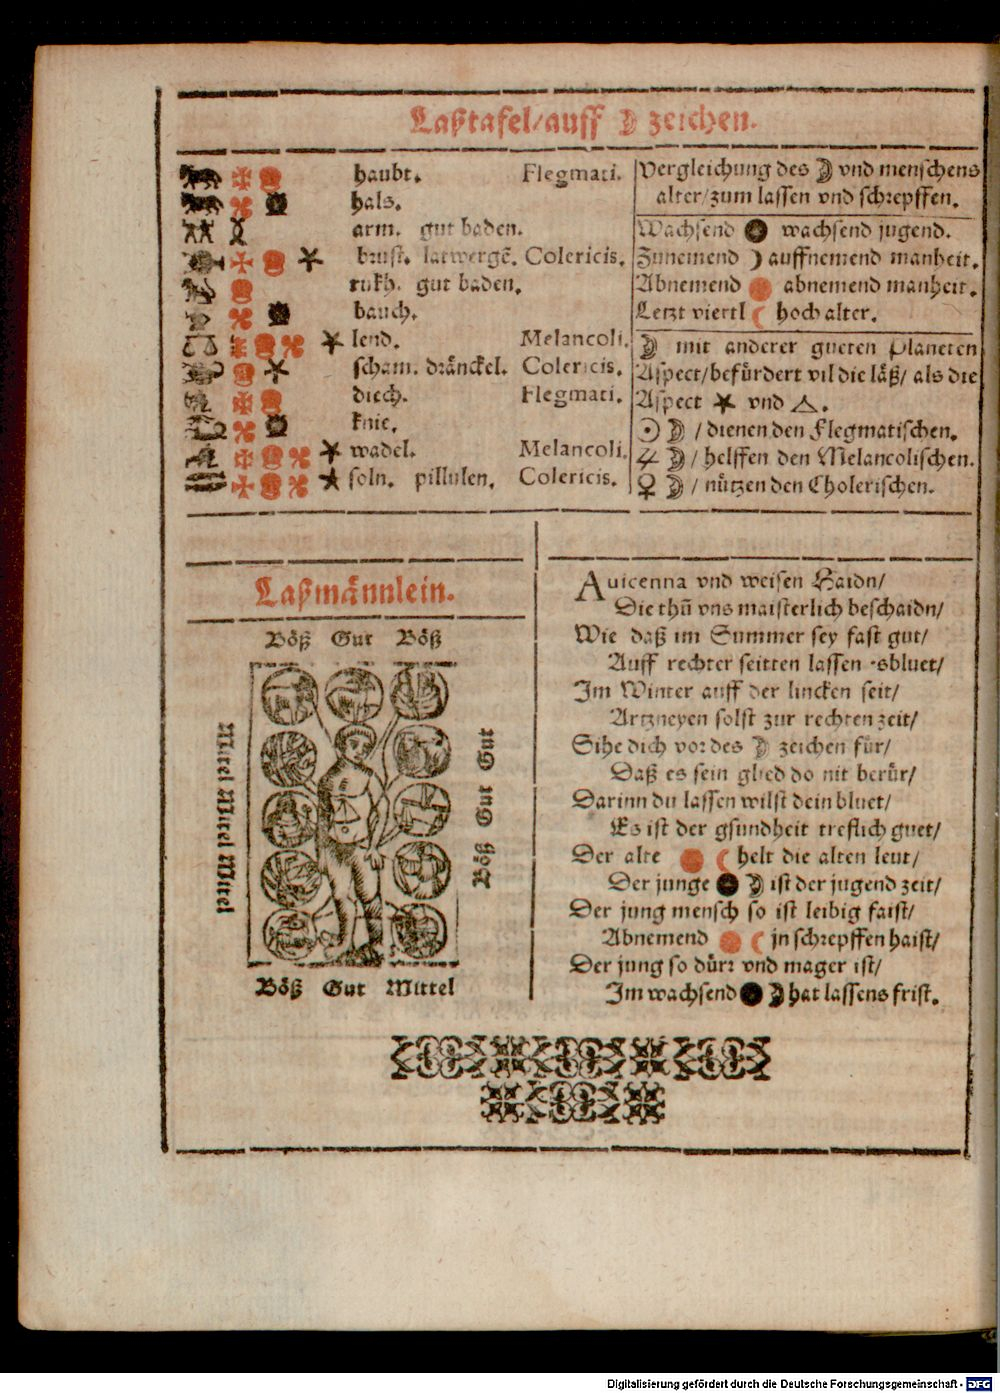 Laßtafel/auff ☽ zeichen.
haubt. Flegmati.
hals.
arm. gut baden.
brust. latwergẽ. Colericis.
rukh. gut baden.
bauch.
lend. Melancoli.
scham. dränckel. Colericis.
diech. Flegmati.
knie.
wadel. Melancoli.
soln. pillulen. Colericis.
Vergleichung des ☽ vnd menschens
alter/zum lassen vnd schrepffen.
Wachsend ● wachsend jugend.
Zunemend ☽ auffnemend manheit.
Abnemend abnemend manheit.
Letzt viertl ☾ hoch alter.
☽ mit anderer gueten Planeten
Aspect/befürdert vil die läß/ als die
Aspect ✶ vnd △.
☉ ☽ / dienen den Flegmatischen.
♃ ☽ / helffen den Melancolischen.
♀ ☽ / nützen den Cholerischen.
Laßmännlein.
Böß Gut Böß
Mittel Mittel Mittel
Böß Gut Gut
Böß Gut Mittel
Auicenna vnd weisen Haidn/
Die thů vns maisterlich beschaidn/
Wie daß im Summer sey fast gut/
Auff rechter seitten lassen sbluet/
Im Winter auff der lincken seit/
Artzneyen solst zur rechten zeit/
Sihe dich vor des ☽ zeichen für/
Daß es sein glied do nit berür/
Darinn du lassen wilst dein bluet/
Es ist der gsundheit treflich guet/
Der alte ● ☾ helt die alten leut/
Der junge ● ☽ ist der jugend zeit/
Der jung mensch so ist leibig faist/
Abnemend ● ☾ jn schrepffen haist/
Der jung so dürr vnd mager ist/
Im wachsend ● ☽ hat lassens frist.
Digitalisierung gefördert durch die Deutsche Forschungsgemeinschaft - DFG